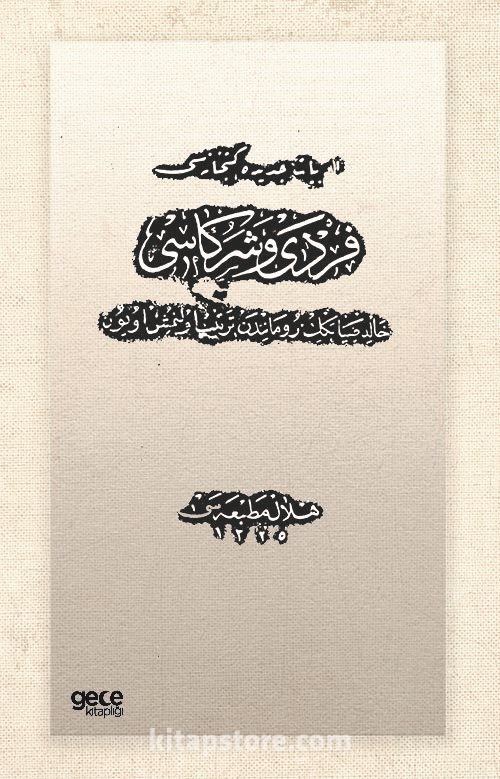 فردی و شرکاسی
خالد ضیا بك روماندن ترتیب اولنمش اویون
هلال مطبعه سی
١٣٢٥
gece
kitaplığı
kitapstore.com